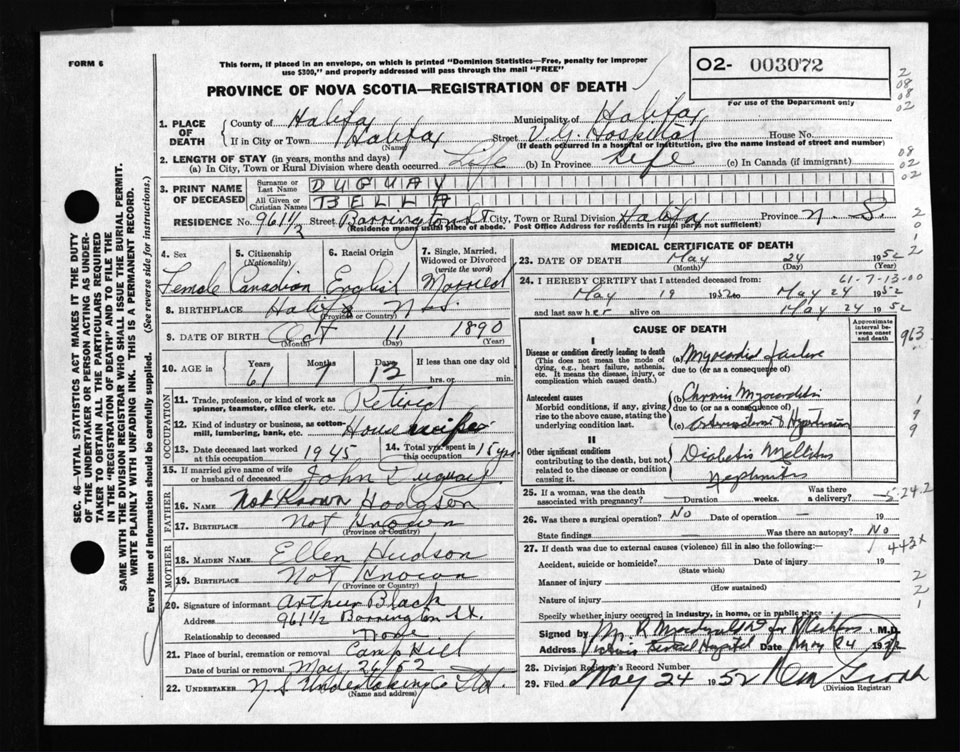 FORM 6
This form, if placed in an envelope, on which is printed "Dominion Statistics—Free, penalty for improper
use $300," and properly addressed will pass through the mail "FREE"
02- 003072
For use of the Department only
PROVINCE OF NOVA SCOTIA—REGISTRATION OF DEATH
1. PLACE OF DEATH
County of Halifax Municipality of Halifax
If in City or Town Halifax Street V.G. Hospital House No.
(Name) (If death occurred in a hospital or institution, give the name instead of street and number)
2. LENGTH OF STAY (in years, months and days)
(a) In City, Town or Rural Division where death occurred Life (b) In Province Life (c) In Canada (if immigrant)
3. PRINT NAME OF DECEASED
Surname or Last Name DUGUAY
All Given or Christian Names BELLA
RESIDENCE No. 961 1/2 Street Barrington St City, Town or Rural Division Halifax Province N.S.
(Residence means usual place of abode. Post Office Address for residents in rural parts not sufficient)
4. Sex Female
5. Citizenship (Nationality) Canadian
6. Racial Origin English
7. Single, Married, Widowed or Divorced (write the word) Married
8. BIRTHPLACE Halifax N.S.
(Province or Country)
9. DATE OF BIRTH Oct 11 1890
(Month) (Day) (Year)
10. AGE in Years 61 Months 7 Days 13 If less than one day old hrs. or min.
OCCUPATION
11. Trade, profession, or kind of work as spinner, teamster, office clerk, etc. Retired
12. Kind of industry or business, as cotton-mill, lumbering, bank, etc. Housewife
13. Date deceased last worked at this occupation 1945
14. Total yrs. spent in this occupation 15 yrs
15. If married give name of wife or husband of deceased John Duguay
FATHER
16. NAME Not Known Hodgson
17. BIRTHPLACE Not Known
(Province or Country)
MOTHER
18. MAIDEN NAME Ellen Hudson
19. BIRTHPLACE Not Known
(Province or Country)
20. Signature of informant Arthur Black
Address 961 1/2 Barrington St.
Relationship to deceased None
21. Place of burial, cremation or removal Camp Hill
Date of burial or removal May 26/52
22. UNDERTAKER N S Undertaking Co Ltd.
(Name and address)
MEDICAL CERTIFICATE OF DEATH
23. DATE OF DEATH May 24 1952
(Month) (Day) (Year)
61-7-13-00
24. I HEREBY CERTIFY that I attended deceased from:
May 19 1952 to May 24 1952
and last saw her alive on May 24 1952
CAUSE OF DEATH
Approximate interval between onset and death
I
Disease or condition directly leading to death
(This does not mean the mode of dying, e.g., heart failure, asthenia, etc. It means the disease, injury, or complication which caused death.)
(a) Myocardial failure
due to (or as a consequence of)
Antecedent causes
Morbid conditions, if any, giving rise to the above cause, stating the underlying condition last.
(b) Chronic Myocarditis
due to (or as a consequence of)
(c) Hypertension
II
Other significant conditions
contributing to the death, but not related to the disease or condition causing it.
Diabetes Mellitus
Nephritis
25. If a woman, was the death associated with pregnancy? Duration weeks. Was there a delivery?
5-24-2
26. Was there a surgical operation? No Date of operation —
State findings — Was there an autopsy? No
443X
27. If death was due to external causes (violence) fill in also the following:—
Accident, suicide or homicide? Date of injury 19
(State which)
Manner of injury
(How sustained)
Nature of injury
Specify whether injury occurred in industry, in home, or in public place
Signed by M.D.
Address Victoria General Hospital Date May 24 1952
28. Division Registrar's Record Number
29. Filed May 24 1952
(Division Registrar)
SEC. 46—VITAL STATISTICS ACT MAKES IT THE DUTY
OF THE UNDERTAKER OR PERSON ACTING AS UNDER-
TAKER TO OBTAIN ALL THE PARTICULARS REQUIRED
IN THE "REGISTRATION OF DEATH" AND TO FILE THE
SAME WITH THE DIVISION REGISTRAR WHO SHALL ISSUE THE BURIAL PERMIT.
WRITE PLAINLY WITH UNFADING INK. THIS IS A PERMANENT RECORD.
Every item of information should be carefully supplied. (See reverse side for instructions.)
2
08
08
02
08
02
02
2
0
1
2
963
1
1
9
9
2
2
1